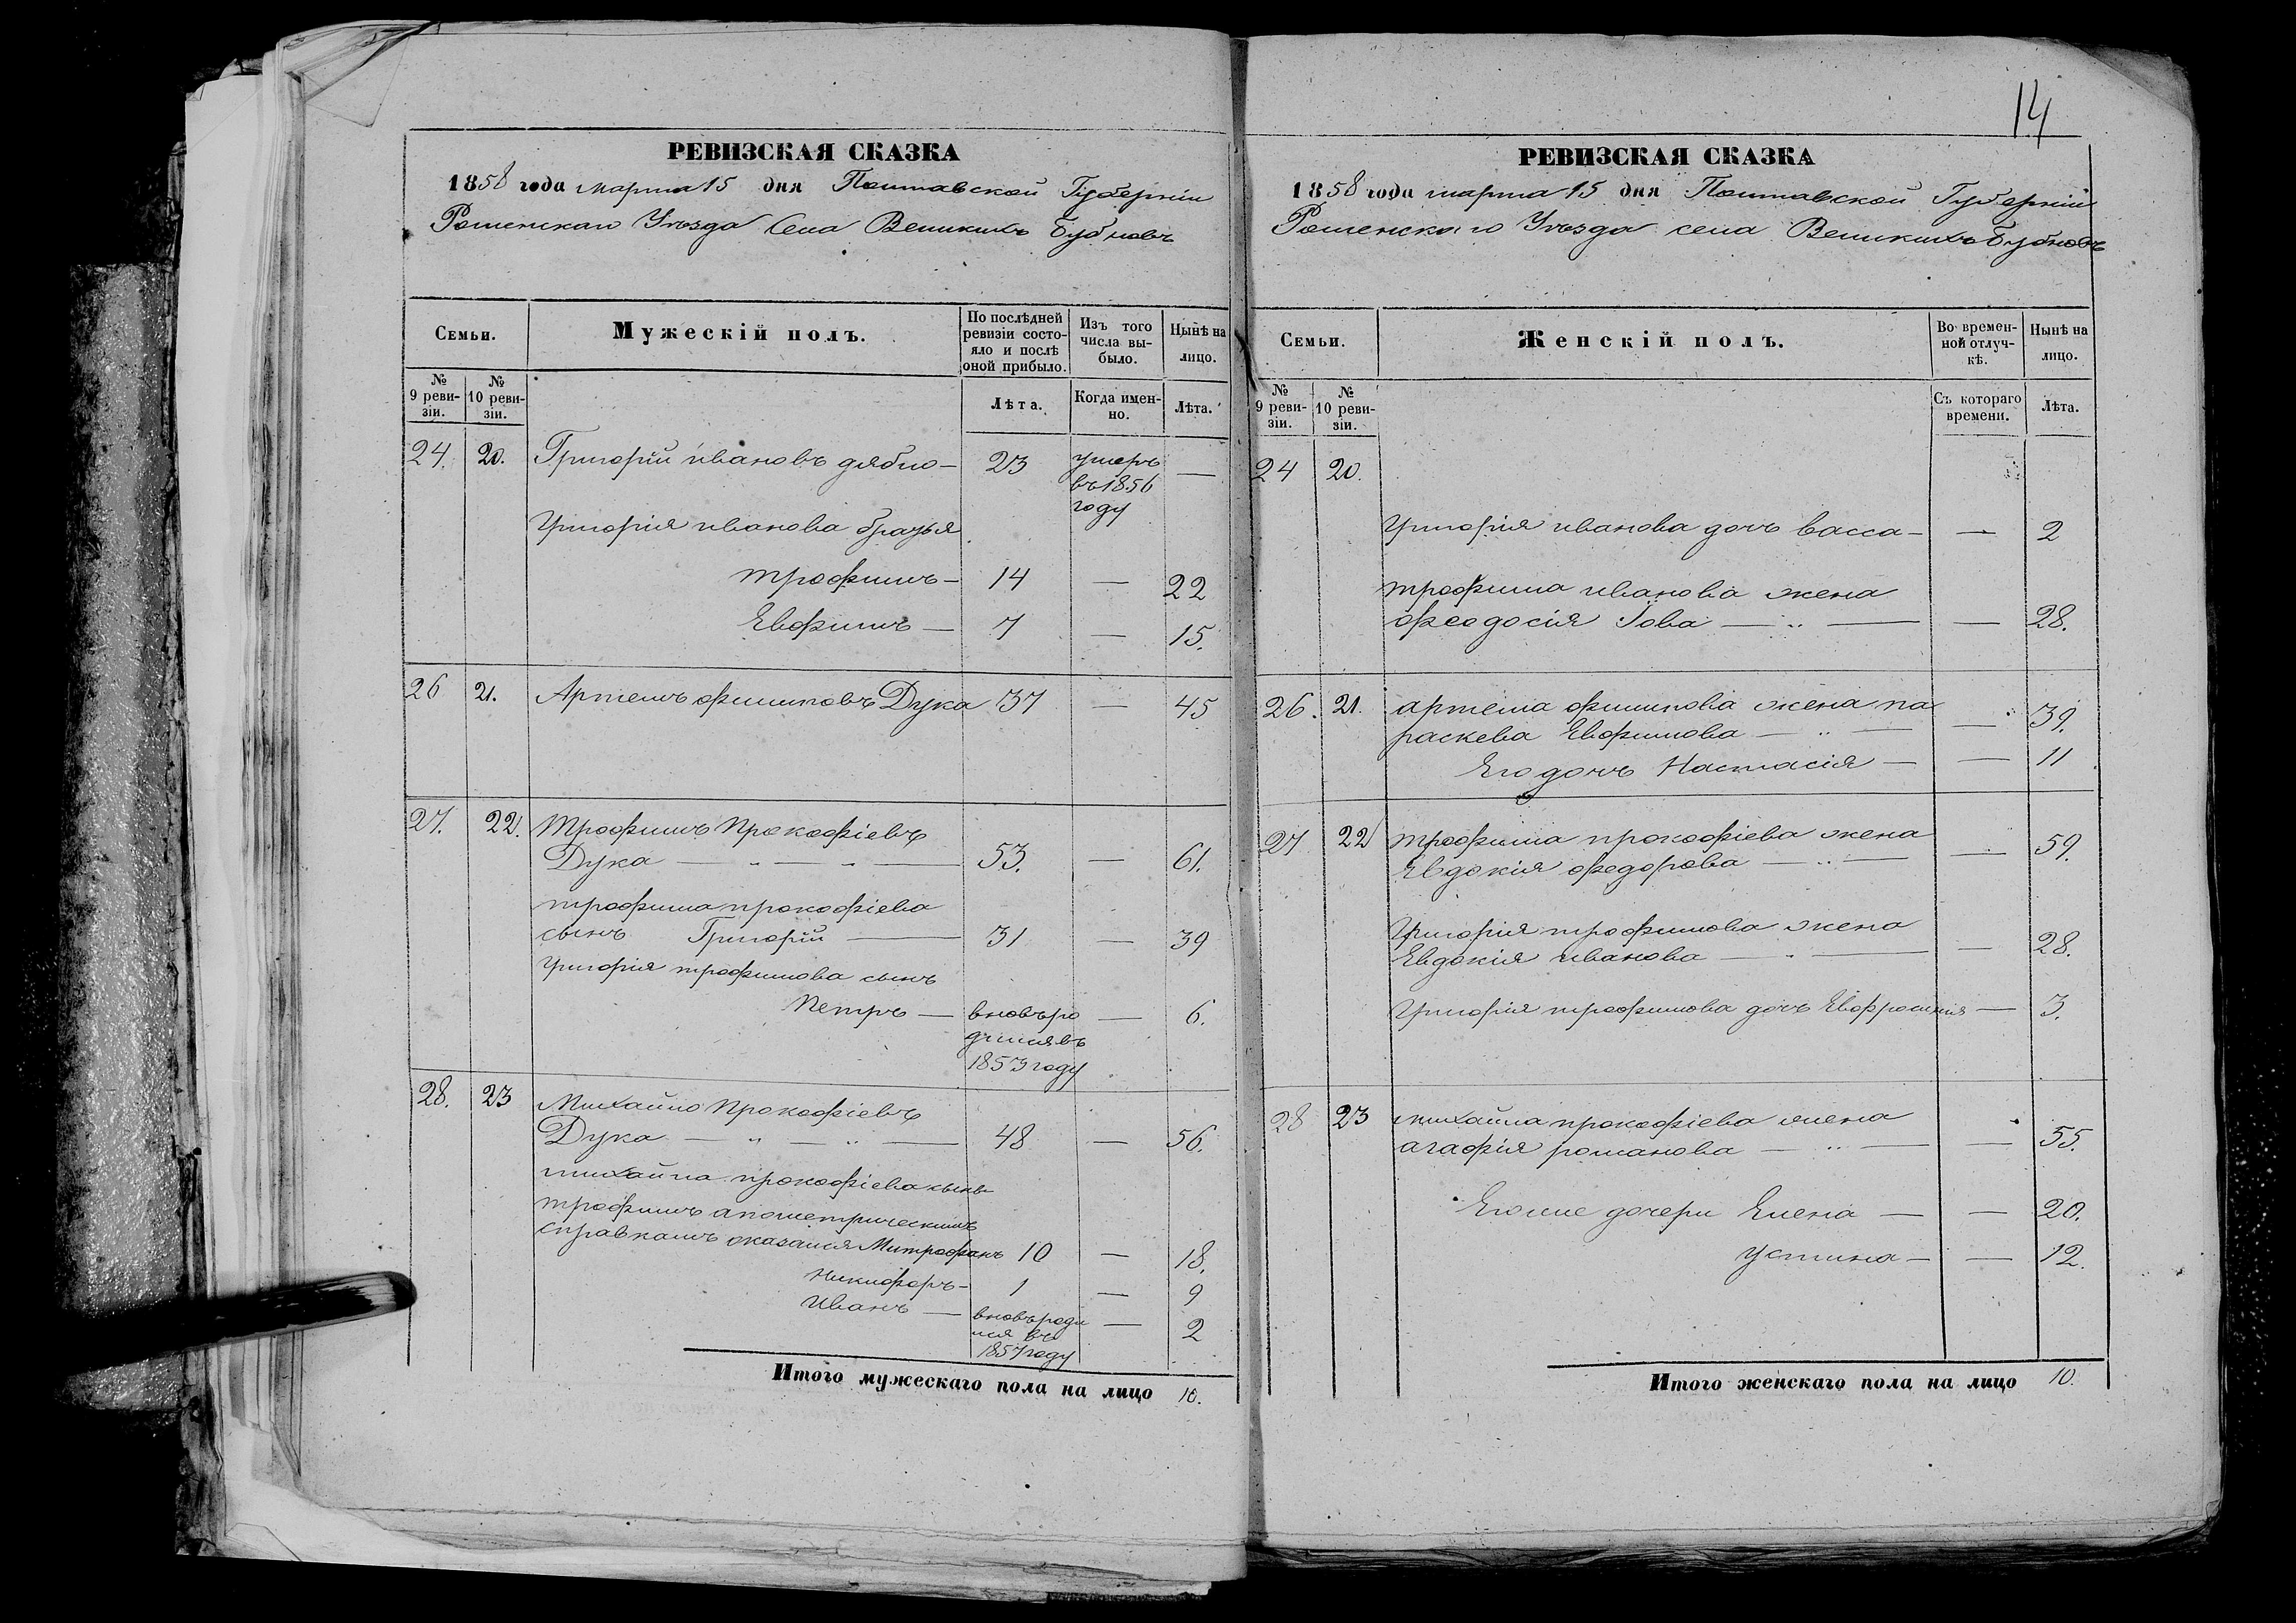 РЕВИЗСКАЯ СКАЗКА
1858 года марта 15 дня Полтавской Губерніи
Роменскаго Уѣзда Села Великихъ Бубновъ
Семьи.
Мужескій полъ.
По послѣдней ревизіи состояло и послѣ оной прибыло.
Изъ того числа выбыло.
Нынѣ на лицо.
№ 9 ревизіи.
№ 10 ревизіи.
Лѣта.
Когда именно.
Лѣта.
24. 20. Григорій ивановъ — 23 умеръ —
въ 1856
году
Григорія иванова братья
трофимъ — 14 — 22
Евфимъ — 7 — 15.
26 21. Артемъ филиповъ Дука 37 — 45
27. 22. Трофимъ Прокофіевъ
Дука — „ — „ — 53. — 61.
трофима прокофіева
сынъ Григорій — 31 — 39
Григорія трофимова сынъ
Петръ — вновь ро — 6.
дился въ
1853 году
28. 23 Михайло Прокофіевъ
Дука — „ — „ — 48 — 56.
михайла прокофіева сынъ
трофимъ апометрическимъ
справкамъ оказался Митрофанъ 10 — 18.
Никифоръ — 1 — 9
Иванъ — вновь роди — 2
лся въ
1857 году
Итого мужескаго пола на лицо 10.
14
РЕВИЗСКАЯ СКАЗКА
1858 года марта 15 дня Полтавской Губерніи
Роменскаго Уѣзда села Великихъ Бубновъ
Семьи.
Женскій полъ.
Во временной отлучкѣ.
Нынѣ на лицо.
№ 9 ревизіи.
№ 10 ревизіи.
Съ котораго времени.
Лѣта.
24 20.
Григорія иванова дочь васса — — 2
трофима иванова жена
феодосія Іова — „ — — 28.
26. 21. артема филипова жена па
раскева Евфимова — „ — — 39.
Его дочь Настасія — — 11
27 22 трофима прокофіева жена
Евдокія федорова — „ — — 59.
Григорія трофимова жена
Евдокія иванова — „ — — 28.
Григорія трофимова дочь Евфросинія — 3.
28 23 михайла прокофіева жена
агафія романова — „ — — 55.
Егоже дочери Елена — — 20.
устина — — 12.
Итого женскаго пола на лицо 10.